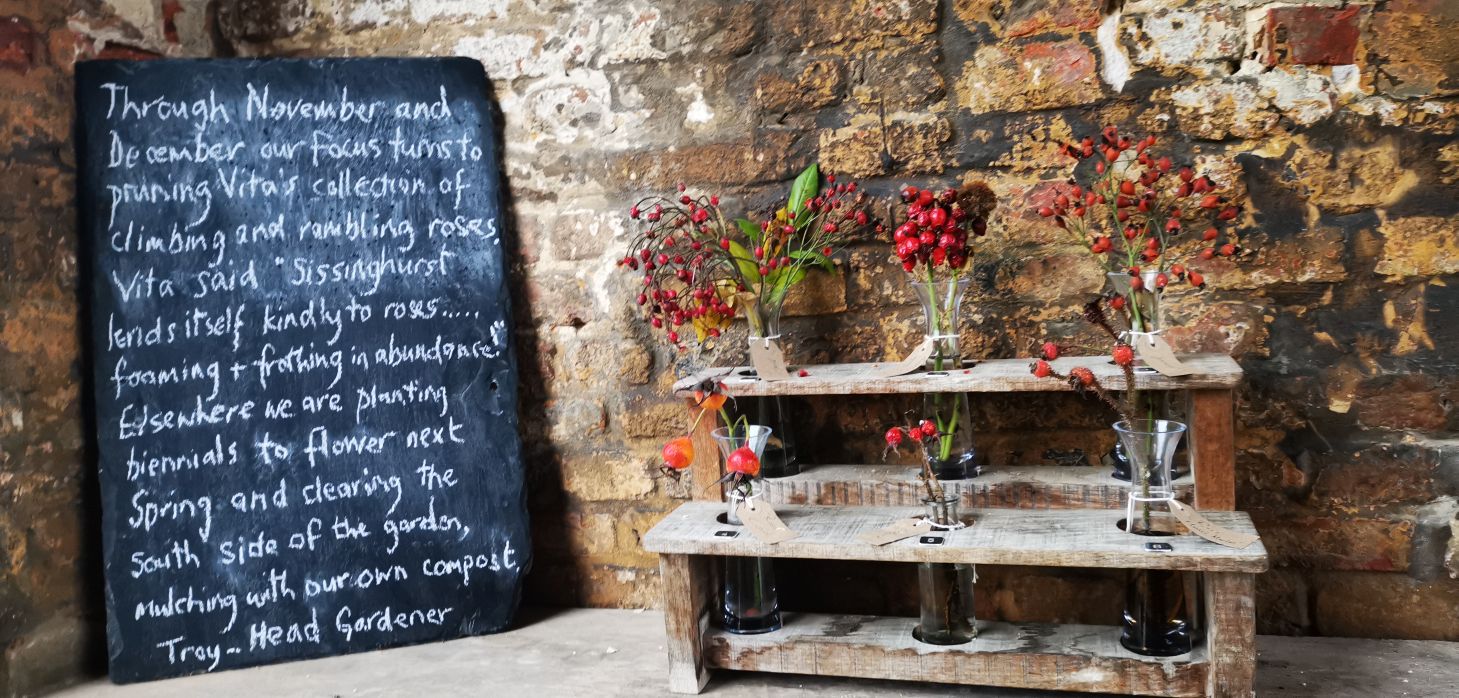 Through November and
December our focus turns to
pruning Vita's collection of
climbing and rambling roses.
Vita said "Sissinghurst
lends itself kindly to roses.....
foaming + frothing in abundance!"
Elsewhere we are planting
biennials to flower next
Spring and clearing the
South side of the garden,
Mulching with our own compost.
Troy - Head Gardener